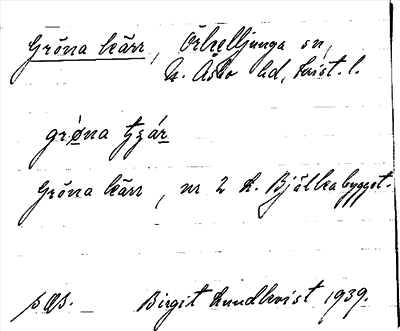 Gröna kärr, Örkelljunga sn,
N. Åsbo hd, Krist. l.
gröna
Gröna kärr, nr 2 k. Bjälkabygget.
pass.
Birgit Lundkvist 1939.